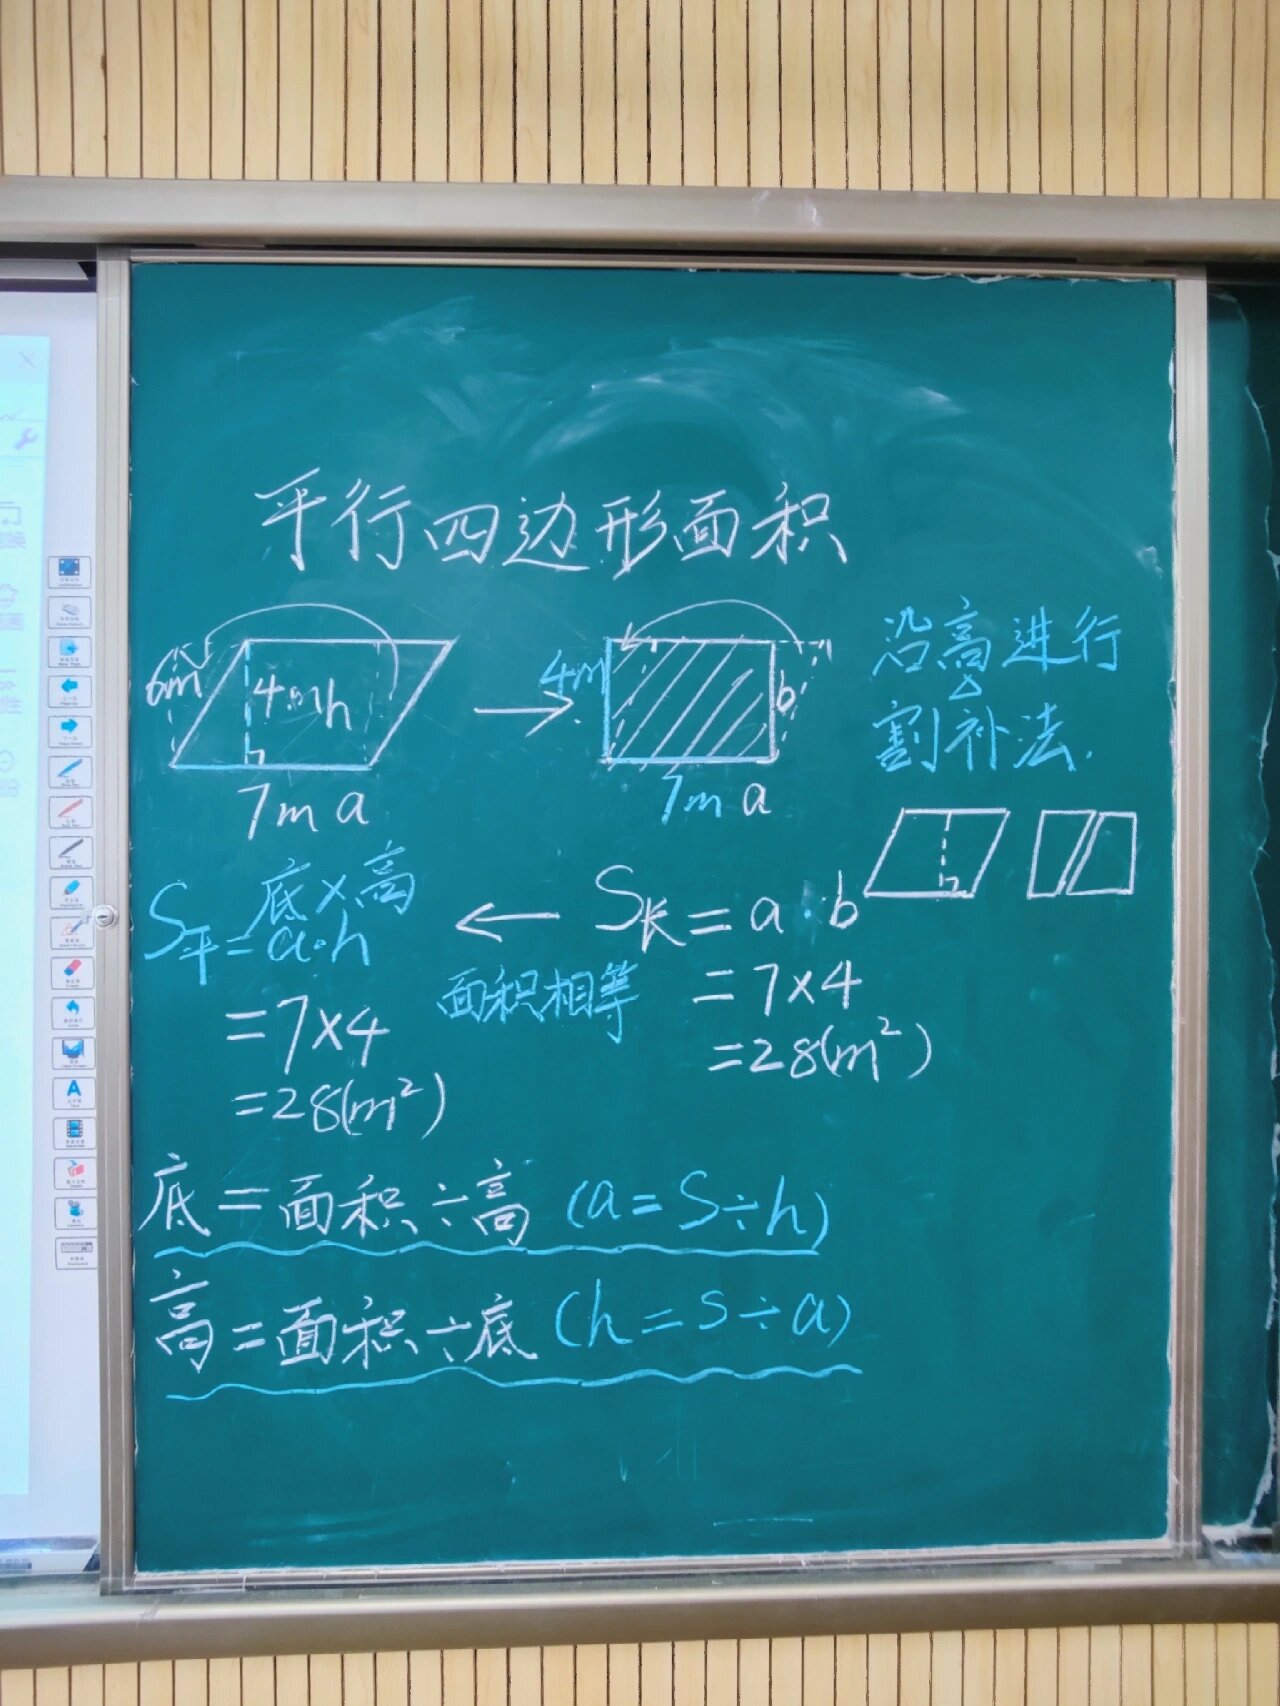 平行四边形面积
6m
4m h
7m a
4m
b
7m a
沿高进行
割补法.
底×高
S平=a·h
=7×4
=28(m²)
面积相等
S长=a·b
=7×4
=28(m²)
底=面积÷高 (a=S÷h)
高=面积÷底 (h=S÷a)